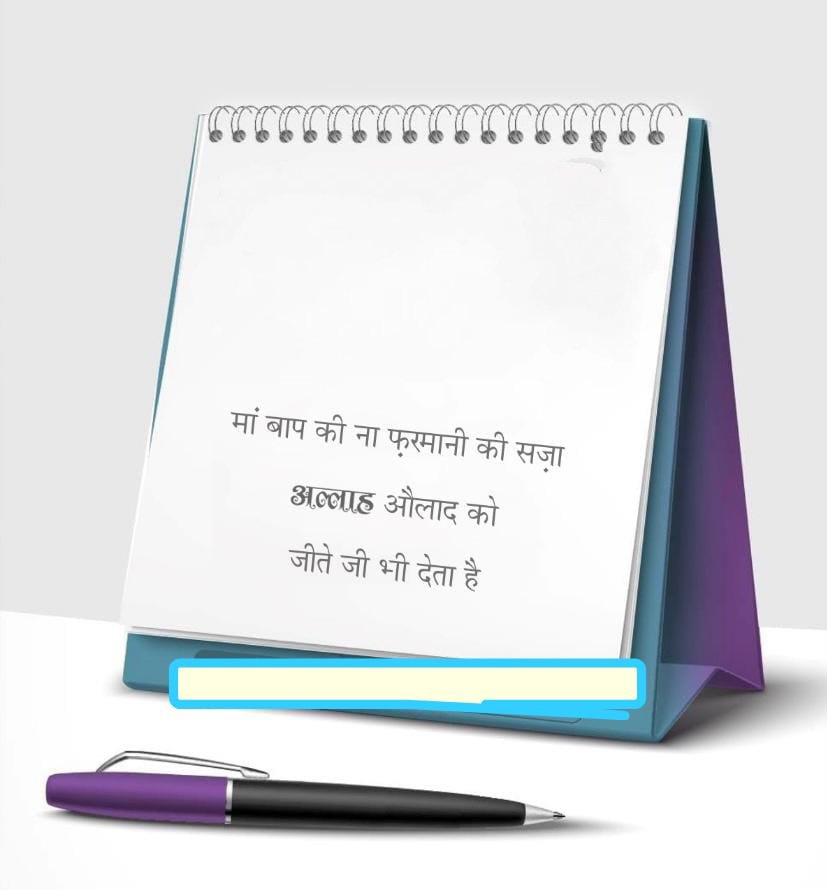 मां बाप की ना फ़रमानी की सज़ा
अल्लाह औलाद को
जीते जी भी देता है